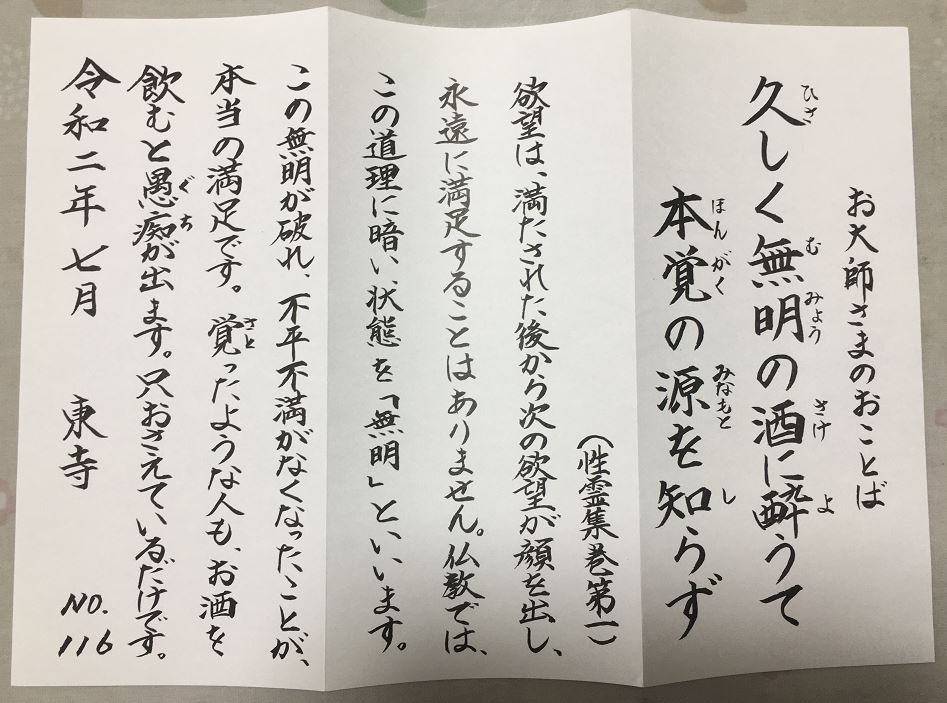 お大師さまのおことば
久しく無明の酒に酔うて
ひさ むみょう さけ よ
本覚の源を知らず
ほんがく みなもと し
(性霊集巻第一)
欲望は、満たされた後から次の欲望が顔を出し、
永遠に満足することはありません。仏教では、
この道理に暗い状態を「無明」といいます。
この無明が破れ、不平不満がなくなったことが、
本当の満足です。覚ったような人も、お酒を
さと
飲むと愚痴が出ます。只おさえているだけです。
ぐち
令和二年七月 東寺 NO.116